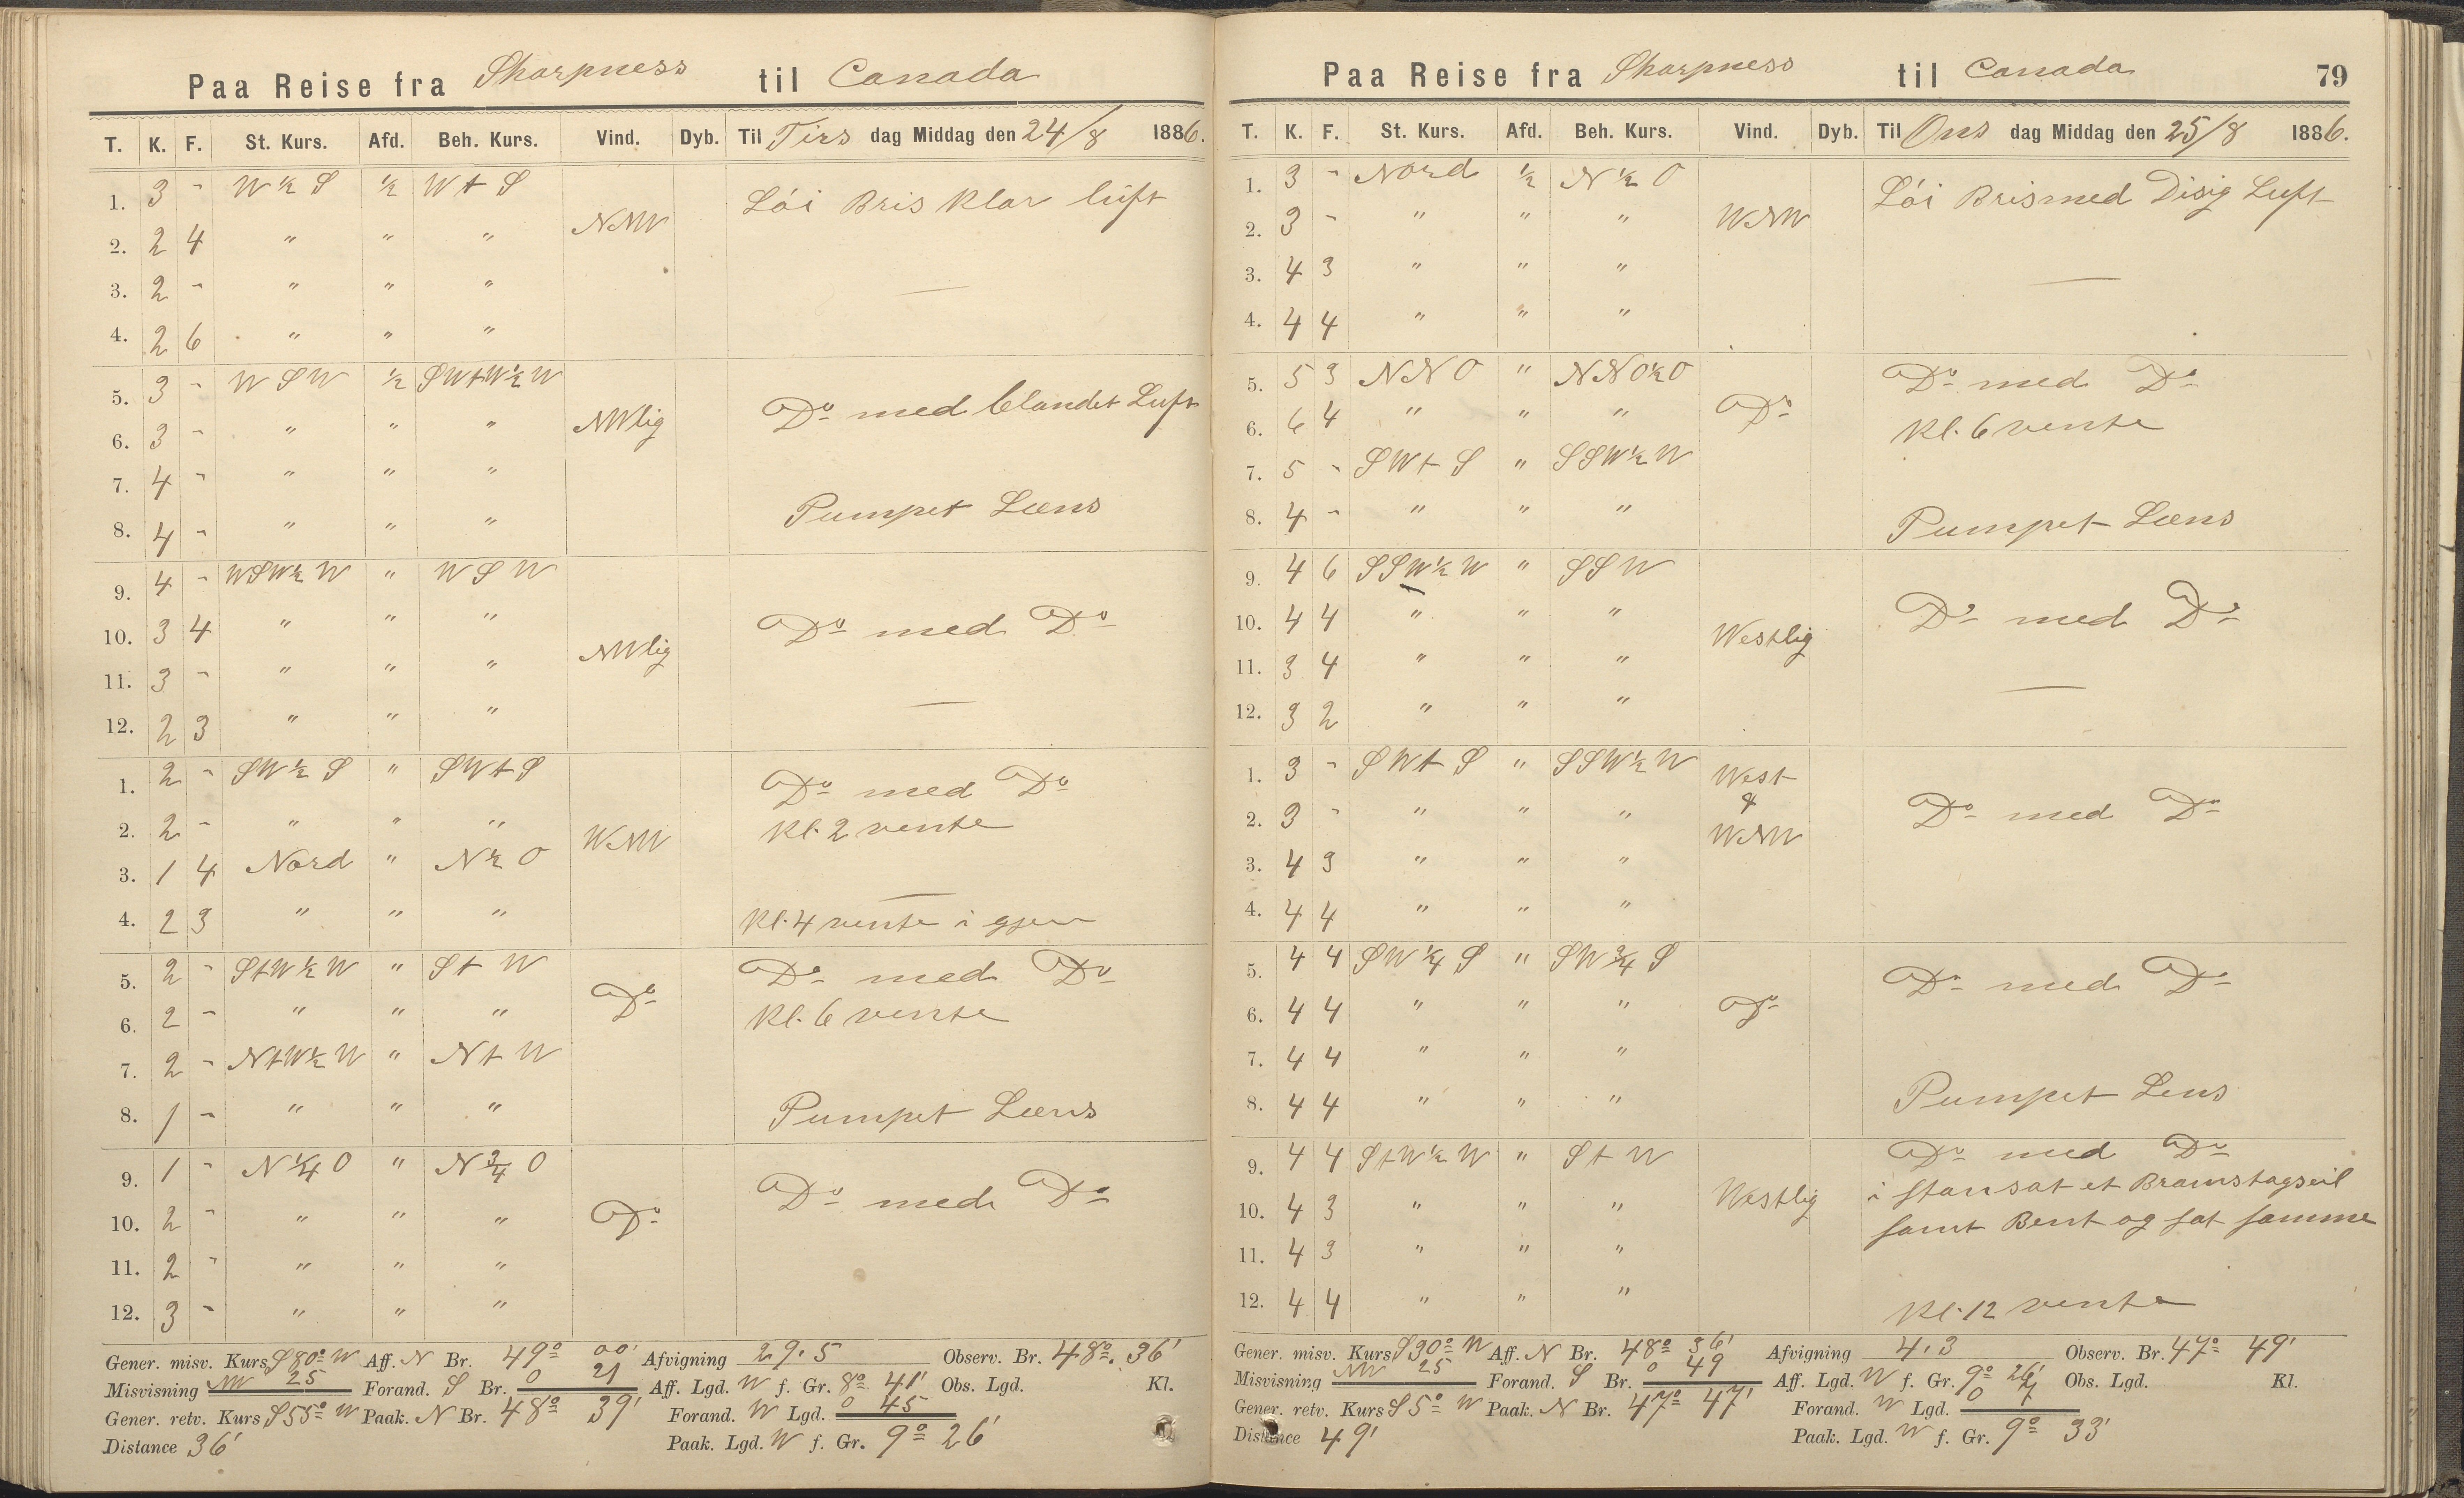 Paa Reise fra Sharpness til Canada
T. K. F. St. Kurs. Afd. Beh. Kurs. Vind. Dyb. Til Tirs dag Middag den 24/8 1886.
1. 3 - W ½ S ½ W t S Löi Bris Klar luft
2. 2 4 " " " NNW
3. 2 - " " " —
4. 2 6 " " "
5. 3 - W S W ½ SWtW½W
6. 3 - " " " NWlig Do med blandet Luft
7. 4 - " " "
8. 4 - " " " Pumpet Læns
9. 4 - WSW½W " W S W
10. 3 4 " " " NWlig Do med Do
11. 3 - " " "
12. 2 3 " " " —
1. 2 - SW½S " SWtS Do med Do
2. 2 - " " " WNW Kl. 2 vente
3. 1 4 Nord " N½O —
4. 2 3 " " " Kl. 4 vente i gjen
5. 2 - StW½W " St W Do med Do
6. 2 - " " " Do Kl. 6 vente
7. 2 - NtW½W " Nt W
8. 1 - " " " Pumpet Læns
9. 1 - N¼O " N¾O
10. 2 - " " " Do Do med Do
11. 2 - " " "
12. 3 - " " "
Gener. misv. Kurs S80° W Aff. N Br. 49° 00' Afvigning 29.5 Observ. Br. 48°. 36'
Misvisning NW 25 Forand. S Br. 0 21 Aff. Lgd. W f. Gr. 8° 41' Obs. Lgd. Kl.
Gener. retv. Kurs S55° W Paak. N Br. 48° 39' Forand. W Lgd. 0 45
Distance 36' Paak. Lgd. W f. Gr. 9° 26'
Paa Reise fra Sharpness til Canada 79
T. K. F. St. Kurs. Afd. Beh. Kurs. Vind. Dyb. Til Ons dag Middag den 25/8 1886.
1. 3 - Nord ½ N½O Löi Bris med Disig Luft
2. 3 - " " " WNW
3. 4 3 " " " —
4. 4 4 " " "
5. 5 3 NNO " NNO½O Do med Do
6. 6 4 " " " Do Kl. 6 vente
7. 5 - SWt S " SSW½W
8. 4 - " " " Pumpet Læns
9. 4 6 SSW½W " SSW
10. 4 4 " " " Westlig Do med Do
11. 3 4 " " "
12. 3 2 " " " —
1. 3 - SWt S " SSW½W West
2. 3 - " " " & Do med Do
3. 4 3 " " " WNW
4. 4 4 " " "
5. 4 4 SW¼S " SW¾S
6. 4 4 " " " Do Do med Do
7. 4 4 " " "
8. 4 4 " " " Pumpet Lens
9. 4 4 StW½W " St W Do med Do
10. 4 3 " " " Westlig i stansat et Bramstagseil
11. 4 3 " " " samt Bent og sat samme
12. 4 4 " " " Kl. 12 vente
Gener. misv. Kurs S30° W Aff. N Br. 48° 36' Afvigning 4.3 Observ. Br. 47° 49'
Misvisning NW 25 Forand. S Br. 0 49 Aff. Lgd. W f. Gr. 9° 26' Obs. Lgd. Kl.
Gener. retv. Kurs S5° W Paak. N Br. 47° 47' Forand. W Lgd. 0 7
Distance 49' Paak. Lgd. W f. Gr. 9° 33'